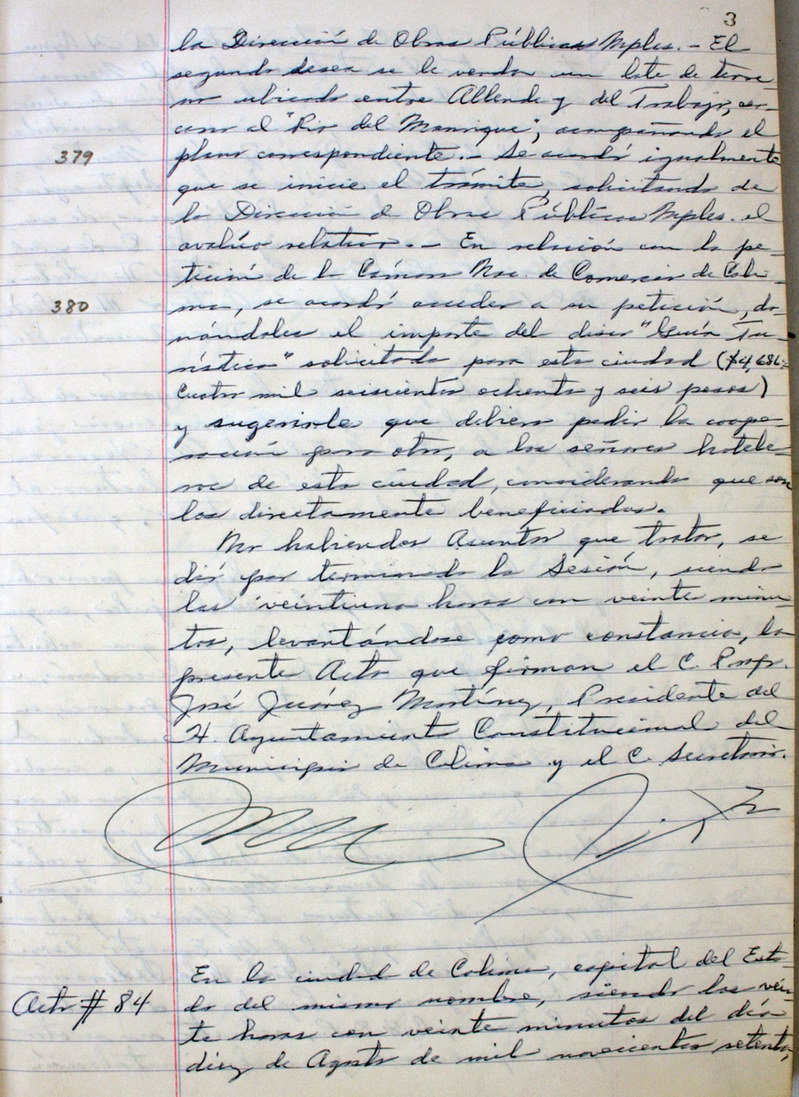 3
la Dirección de Obras Públicas Mples. - El
segundo desea se le venda un lote de terre-
no ubicado entre Allende y del Trabajo, cer-
cano al "Río del Manrique", acompañando el
379
plano correspondiente. - Se acordó igualmente
que se inicie el trámite, solicitando de
la Dirección de Obras Públicas Mples. el
avalúo relativo. - En relación con la pe-
tición de la Cámara Nac. de Comercio de Coli-
380
ma, se acordó acceder a su petición, do-
nándoles el importe del disco "Guía Tu-
rística" solicitado para esta ciudad ($4,686=
Cuatro mil seiscientos ochenta y seis pesos)
y sugerirle que debiera pedir la coope-
ración para otro, a los señores hotele-
ros de esta ciudad, considerando que son
los directamente beneficiados.
No habiendo Asuntos que tratar, se
dió por terminada la Sesión, siendo
las veintiuna horas con veinte minu-
tos, levantándose como constancia, la
presente Acta que firman el C. Profr.
José Juárez Martínez, Presidente del
H. Ayuntamiento Constitucional del
Municipio de Colima y el C. Secretario.
En la ciudad de Colima, capital del Esta-
Acta # 84
do del mismo nombre, siendo las vein-
te horas con veinte minutos del día
diez de Agosto de mil novecientos setenta,